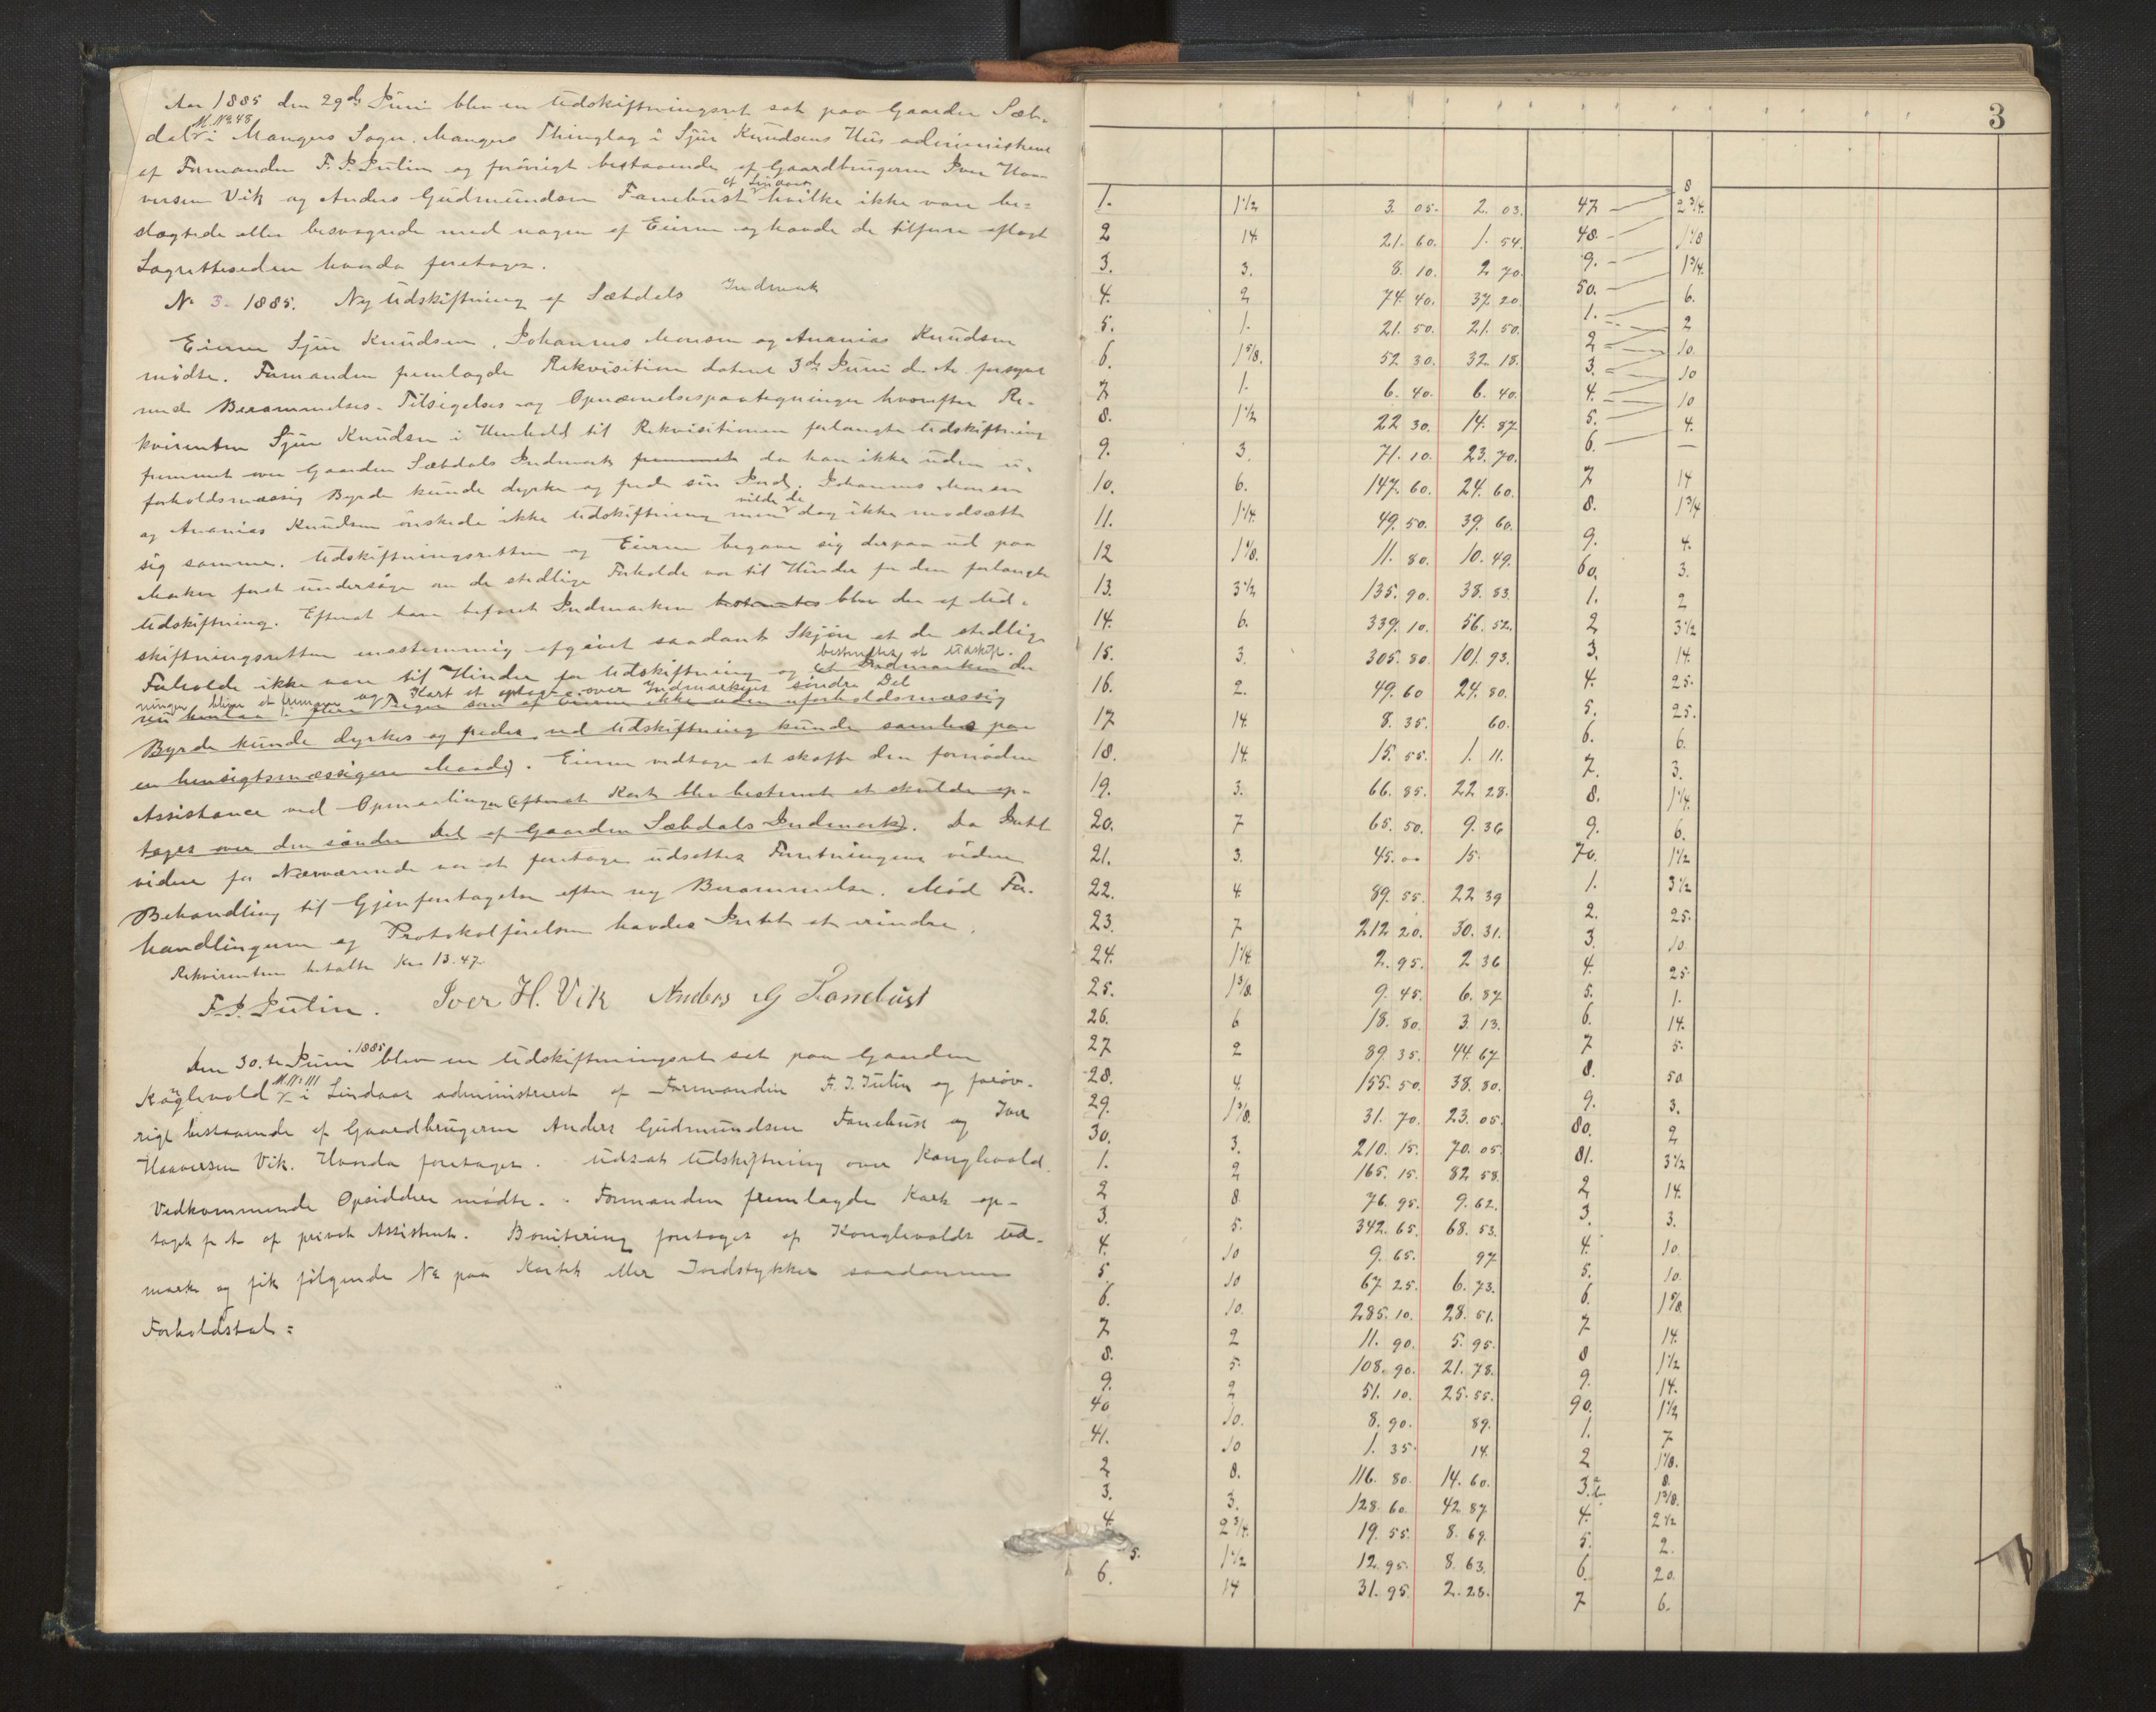 Aar 1885 den 29de Juni blev en Udskiftningsret sat paa Gaarden Sæb-
dal M. No 48 i Mangers Sogn, Mangers Thinglag i Sjur Knudsens Hus administreret
af Formanden F. J. Jutin og forövrigt bestaaende af Gaardbrugerne Iver Haa-
versen Vik og Anders Gudmundsen Fanebust af Lindaas hvilke ikke vare be-
slægtede eller besvogrede med nogen af Eierne og havde de tilforn aflagt
Lagretteseden hvorda foretoges.
No 3. 1885. Ny Udskiftning af Sæbdals Indmark
Eierne Sjur Knudsen, Johannes Monsen og Ananias Knudsen
mødte. Formanden fremlagde Rekvisition dateret 3de Juni d. A. forsynet
med Berammelses- Tilsigelses- og Opnævnelsespaategninger hvorefter Re-
kvirenten Sjur Knudsen i Henhold til Rekvisitionen forlangte Udskiftning
fremmet over Gaarden Sæbdals Indmark fremmet da han ikke uden u-
forholdsmæssig Byrde kunde dyrke og frede sin Jord. Johannes Monsen
og Ananias Knudsen ønskede ikke Udskiftning men vilde de dog ikke modsætte
sig samme. Udskiftningsretten og Eierne begave sig derpaa ud paa
Marken forat undersøge om de stedlige Forholde var til Hinder for den forlangte
Udskiftning. Efterat have befaret Indmarken blev der af Ud-
skiftningsretten enstemmig afgivet saadant Skjön at de stedlige
Forholde ikke vare til Hinder for Udskiftning og bestemtes at Udskift-
at Indmarken der
ningen bliver at fremme og Kart at optage over Indmarkens söndre Del
nu henlaa i flere Teiger som af Eierne ikke uden uforholdsmæssig
Byrde kunde dyrkes og fredes ved Udskiftning kunde samles paa
en hensigtsmæssigere Maade). Eierne vedtoge at skaffe den fornødne
Assistance ved Opmaalingen (efterat Kart blev bestemt at skulde op-
tages over den søndre Del af Gaarden Sæbdals Indmark). Da Intet
videre for Nærværende var at foretage udsattes Forretningens videre
Behandling til Gjenforetagelse efter ny Berammelse. Mod For-
handlingerne og Protokolførelsen havdes Intet at erindre.
Rekvirenten betalte Kr. 13.47.
F. J. Jutin. Iver H. Vik Anders G Fanebust
Den 30. te Juni 1885 blev en Udskiftningsret sat paa Gaarden
Konglevold M. No 111 i Lindaas administreret af Formanden F. J. Jutin og forøv-
rigt bestaaende af Gaardbrugerne Anders Gudmundsen Fanebust og Iver
Haaversen Vik. Hvorda foretoges. Udsat Udskiftning over Konglevold.
Vedkommende Opsiddere mødte. Formanden fremlagde Kart op-
taget f. A. af privat Assistent. Bonitering foretoges af Konglevolds Ud-
mark og fik følgende No paa Kartet eller Jordstykker saadanne
Forholdstal:
3
8
1. 1 1/2 3. 05. 2. 03. 47 2 3/4.
2 14. 21. 60. 1. 54. 48. 1 1/8
3. 3. 8. 10. 2 70. 9. 1 3/4.
4. 2 74. 40. 37. 20. 50. 6.
5. 1. 21. 50. 21. 50. 1. 2
6. 1 5/8. 52 30. 32. 18. 2 10.
7 1. 6. 40. 6. 40. 3. 10
8. 1 1/2 22 30. 14. 87 4. 10
9. 3. 71. 10. 23. 70. 5. 4.
10. 6. 147. 60. 24. 60. 6. —
11. 1 1/4. 49. 50. 39. 60. 7 14
12 1 1/8. 11. 80. 10. 49. 8. 1 3/4
13. 3 1/2 135. 90. 38. 83. 9. 4.
14. 6. 339. 10. 56. 52. 60. 3.
15. 3. 305. 80. 101. 93. 1. 2
16. 2. 49. 60 24. 80. 2 3 1/2
17 14. 8. 35. 60. 3. 14.
18. 14. 15. 55. 1. 11. 4. 25.
19. 3. 66. 85. 22 28. 5. 25.
20. 7 65. 50. 9. 36 6. 6.
21. 3. 45. 00 15. 7. 3.
22. 4. 89. 55. 22 39 8. 1 1/4.
23. 7 212 20. 30. 31. 9. 6.
24. 1 1/4. 2. 95. 2 36 70. 1 1/2
25. 1 3/8. 9. 45. 6. 87 1. 3 1/2
26. 6 18. 80. 3. 13. 2. 25.
27 2 89. 35. 44. 67 3. 10
28. 4. 155. 50. 38. 80. 4. 25
29. 1 3/8. 31. 70. 23. 05. 5. 1.
30. 3. 210. 15. 70. 05. 6. 14.
1. 2 165. 15. 82 58. 7 5.
2 8 76. 95. 9. 62. 8. 50
3. 5. 342. 65. 68. 53. 9. 3.
4. 10 9. 65. 97 80. 2
5. 10 67 25. 6. 73. 81. 3 1/2
6. 10. 285. 10. 28. 51. 2 14.
7 2 11. 90. 5. 95. 3. 3.
8. 5. 108. 90. 21. 78. 4. 10.
9. 2 51. 10. 25. 55. 5. 10.
40 10. 8. 90. 89. 6. 1 5/8.
41. 10 1. 35. 14. 7 14.
2 8. 116. 80. 14. 60. 8 1 1/2
3. 3. 128. 60. 42 87. 9. 14.
4. 2 3/4. 19. 55. 8. 69. 90. 1 1/2
5. 1 1/2 12. 95. 8. 63. 1. 7
6. 14 31. 95. 2. 28. 2 1 1/8.
3. a 8.
b 1 3/8.
4. 2 1/2
5. 2.
6. 20.
7 6.